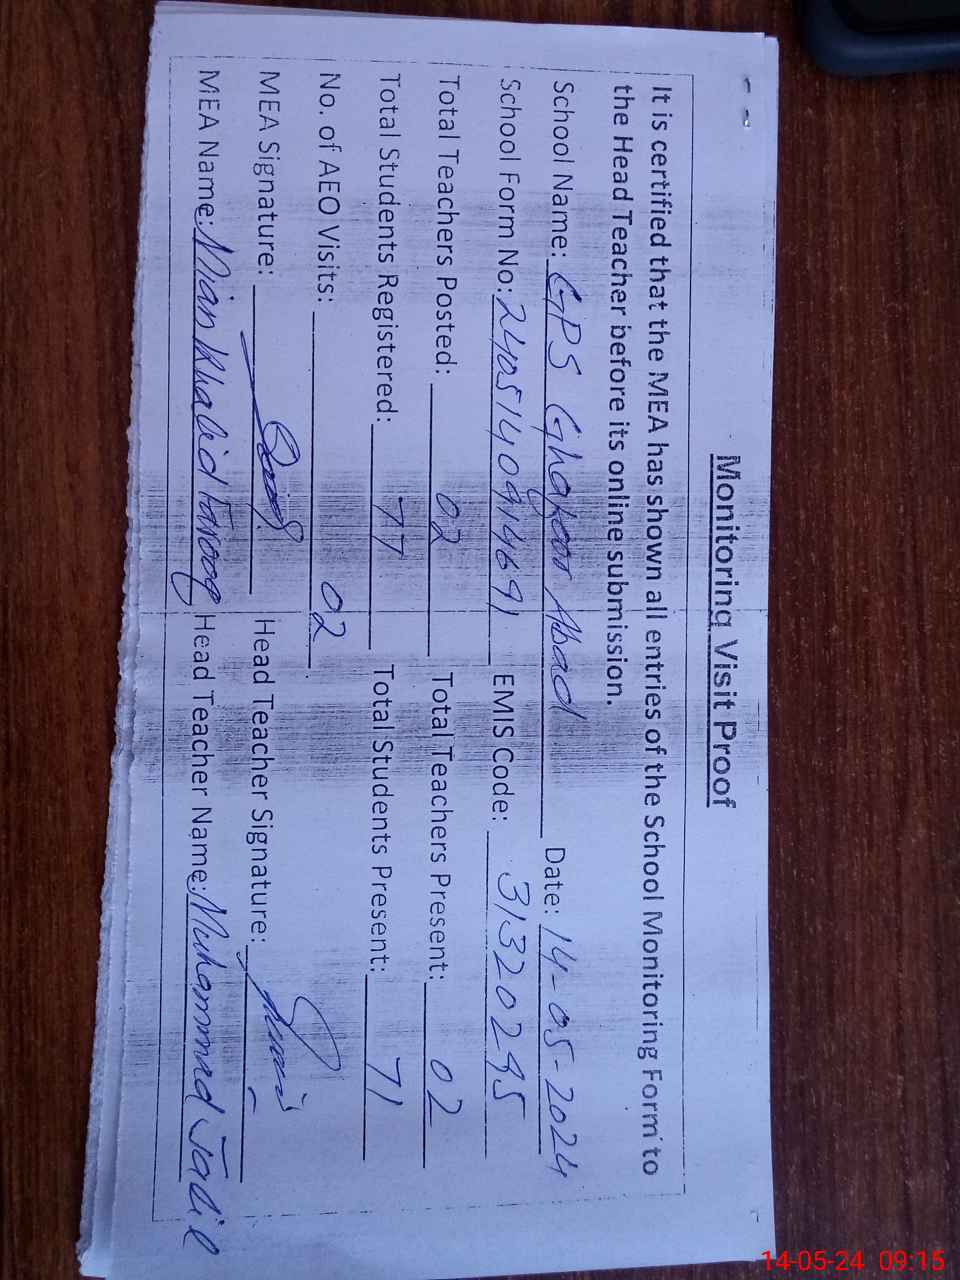 Monitoring Visit Proof
It is certified that the MEA has shown all entries of the School Monitoring Form to
the Head Teacher before its online submission.
School Name: GPS Ghafoor Abad Date: 14-05-2024
School Form No: 2405140914691 EMIS Code: 31320295
Total Teachers Posted: 02 Total Teachers Present: 02
Total Students Registered: 77 Total Students Present: 71
No. of AEO Visits: 02
MEA Signature: Head Teacher Signature:
MEA Name: Mian Khalid Farooq Head Teacher Name: Muhammad Jalil
14-05-24 09:15